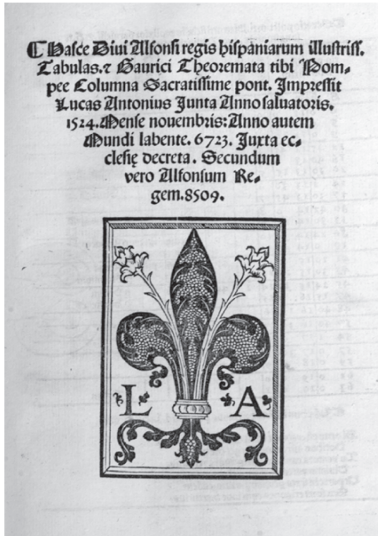 ☾Hasce Diui Alfonsi regis hispaniarum illustriss.
Tabulas.⁊ Gaurici Theoremata tibi Pom⸗
pee Columna Sacratissime pont. Impressit
Lucas Antonius Junta Anno saluatoris.
1524. Mense nouembris: Anno autem
Mundi labente. 6723. Juxta ec⸗
clesię decreta. Secundum
vero Alfonsum Re⸗
gem. 8509.
L A